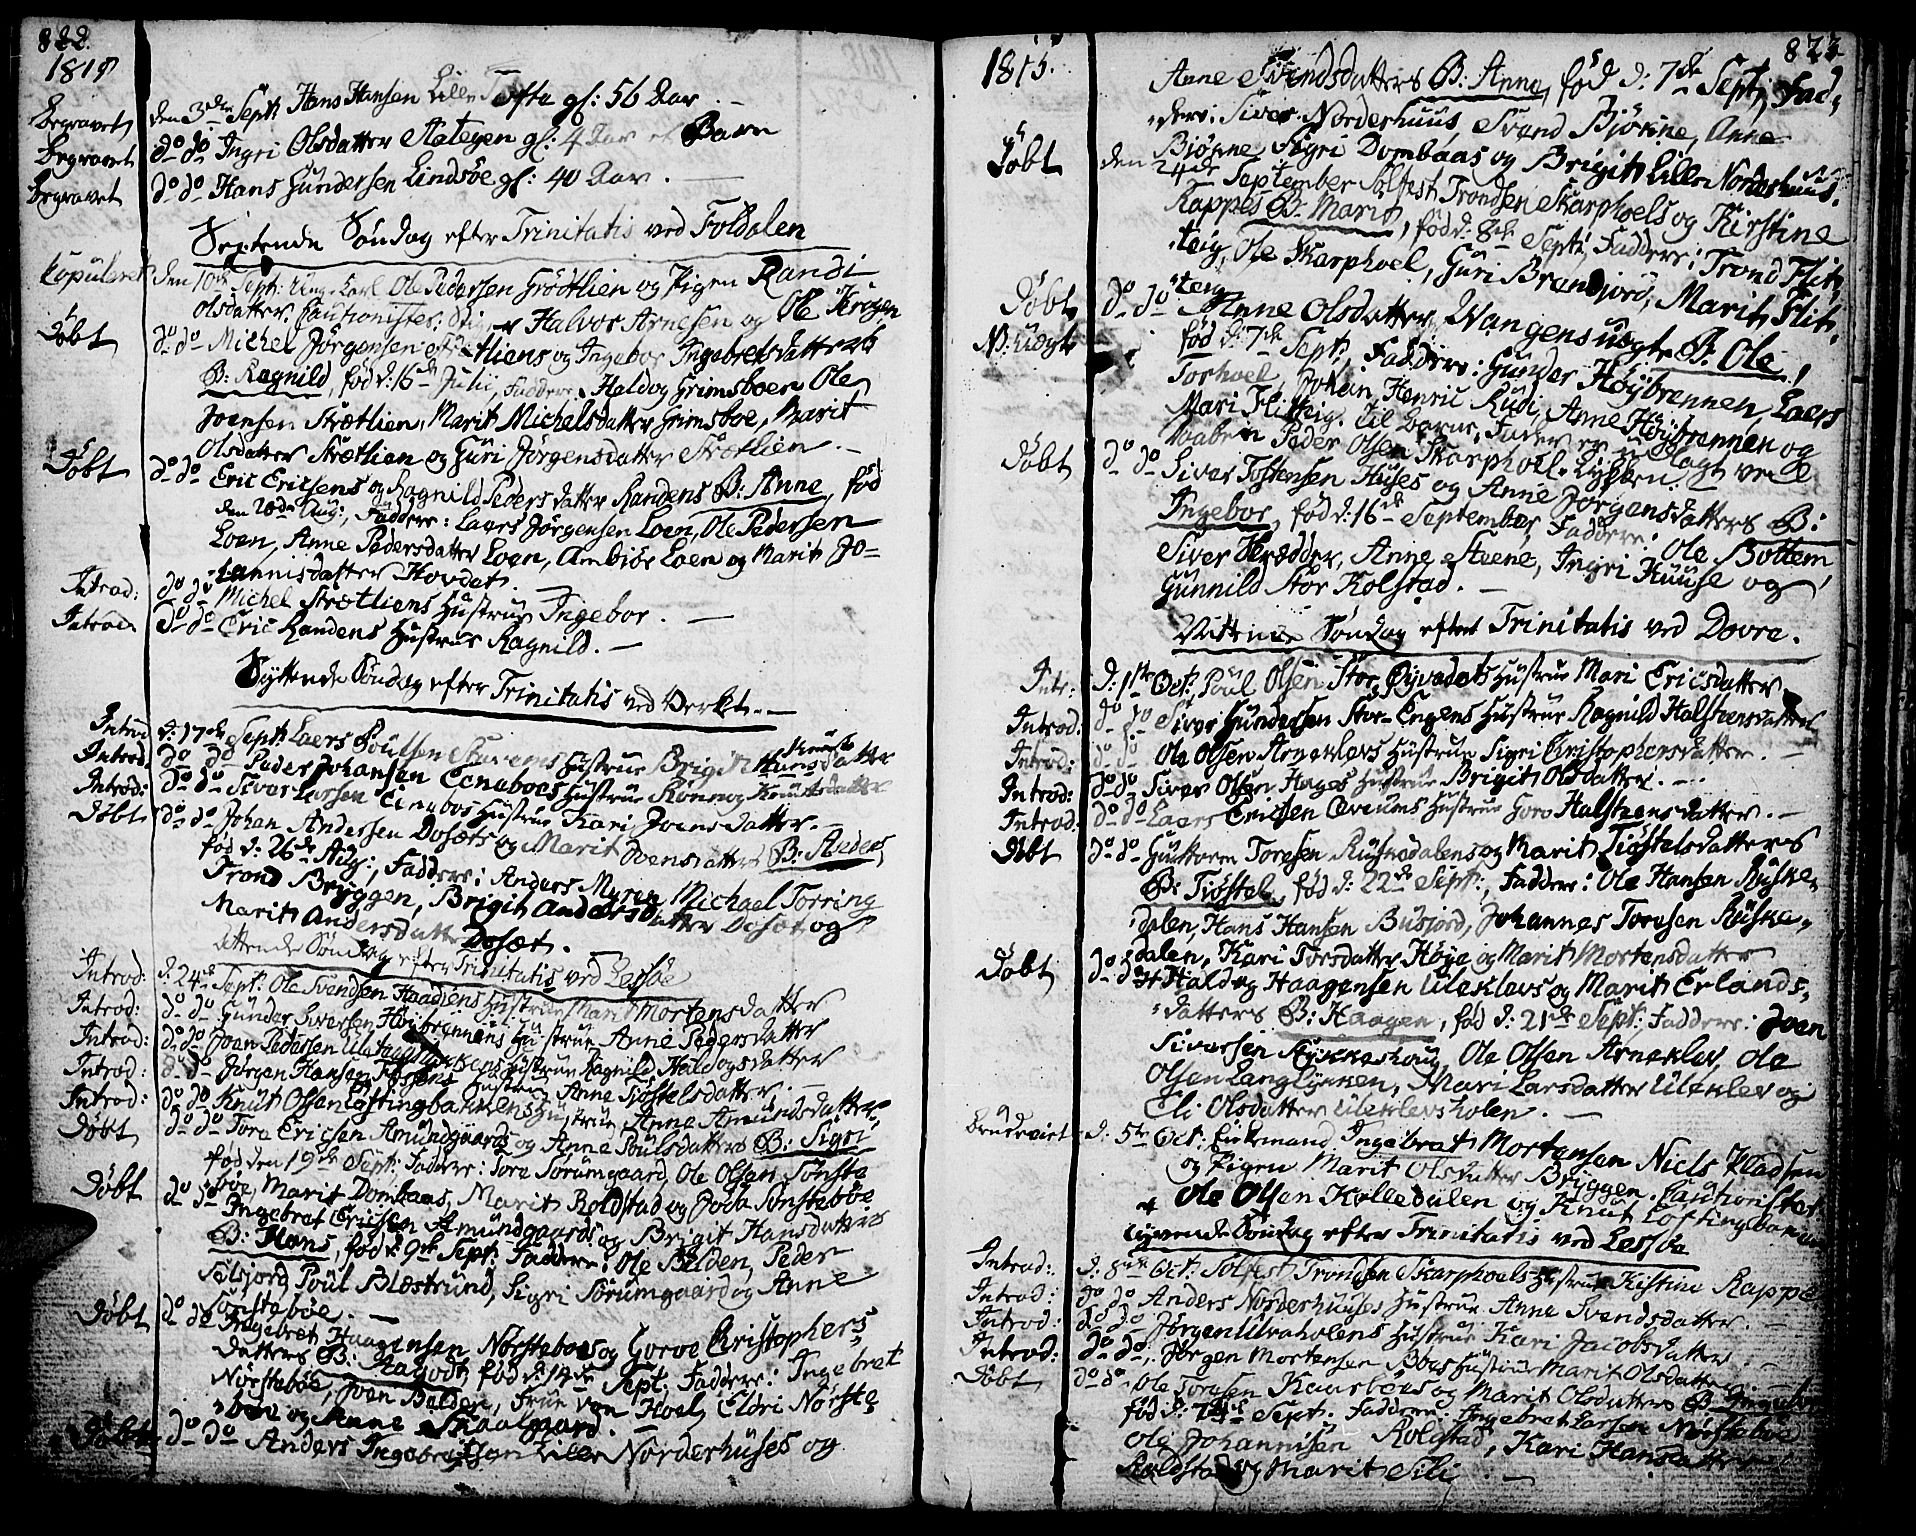 822.
1815
Begravet den 3de Sept: Hans Hansen Lille Tofte gl: 56 Aar. —
Begravet do do Ingri Olsdatter Aategen gl: 4 Aar et Barn
Begravet do do Hans Gundersen Lindsöe gl: 40 Aar. —
Sextende Söndag efter Trinitatis ved Foldalen
Kopuleret den 10de Sept: Ung-Karl Ole Pedersen Grödtlien og Pigen Randi
Olsdatter. Cautionister: Halvor Arnesen og Ole Krogen
Döbt do do Michel Jörgensen Strætliens og Ingebor Ingebretsdatters
B: Ragnild, fød d: 16de Julii, Faddere: Haldog Grimsboen Ole
Joensen Strætlien, Marit Michelsdatter Grimsboe, Marit
Olsdatter Strætlien og Guri Jörgensdatter Strætlien. —
Döbt do do Eric Ericsens og Ragnild Pedersdatter Randens B: Anne, fød
den 20de Aug:, Faddere: Laers Jörgensen Loen, Ole Pedersen
Loen, Anne Pedersdatter Loen, Ambiör Loen og Marit Jo=
hannisdatter Hovdet. —
Introd: do do Michel Strætliens Hustrue Ingebor. —
Introd: do do Eric Randens Hustrue Ragnild. —
Syttende Söndag efter Trinitatis ved Verket. —
Introd d: 17de Sept: Laers Poulsen Hustrue Brigit Knutsdatter
Introd. do do Peder Johansen Eenaboes Hustrue Rönnog Knutsdatter
Introd: do do Siver Larsen Einaboes Hustrue Kari Joensdatter. —
Döbt do do Johan Andersen Dosæts og Marit Svensdatters B: Anders
fød d: 26de Aug:, Faddere: Anders Myren Michael Torring
Trond Bryggen, Brigit Andersdatter Dosæt og
Marit Andersdatter Dosæt.
Attende Söndag efter Trinitatis ved Lessöe
Introd: d: 24de Sept: Ole Svendsen Haadiens Hustrue Marit Mortensdatter
Introd: do do Gunder Siversen Höybrennens Hustrue Anne Pedersdatter
Introd: do do Joen Pedersen Hustrue Ragnild Haldogsdatter
Introd: do do Jörgen Hansen Hustrue Anne Tjöstelsdatter. —
Introd: do do Knut Olsen Löftingbakkens Hustrue Anne Amundsdatter.
Döbt do do Tore Ericsen Amundgaards og Anne Poulsdatters B: Sigri
fød den 19de Sept: Faddere: Tore Sörumgaard, Ole Olsen Tönste
böe, Marit Dombaas, Marit Roldstad og Joda Tönsteböe
Döbt do do Ingebret Ericsen Amundgaards og Brigit Hansdatters
B: Hans, fød d: 9de Sept: Faddere: Ole Bilden, Peder
Selsjord, Poul Blæstrund, Sigri Sörumgaard og Anne
Tönsteböe. —
Döbt do do Ingebret Haagensen Nörsteboes og Gorve Christophers
datters B: Aagodt, fød d: 14de Sept: Faddere: Ingebret
Nörsteböe, Joen Balden, Frue von Hoel, Eldri Nörste
böe og Anne Skaalgaard. —
Döbt do do Anders Ingebretsen Lille Norderhuses og
823
1815.
Anne Svendsdatters B: Anne, fød d: 7de Sept: Fad,
dere: Siver Norderhuus, Svend Bjökne, Anne
Biökne, Sigri Dombaas og Brigit Lille Norderhuus.
Döbt den 24de September Solfest Trondsen Skarphoels og Kirstine
Rappes B: Marit, fød d: 8de Sept: Faddere: Trond Flit,
teig, Ole Skarphoel, Guri Brandjord, Marit Flit,
teig
Döbt do do Anne Olsdatter Wangens uægte B: Ole
N: Uægte fød d: 7de Sept:, Faddere: Gunder Höybrennen, Laers
Torhoel, Johan Henric Rudi, Anne Höybrennen og
Mari Flitteig. Til Barne-Fader er udlagt ved
Daaben Peder Olsen Skarphoel-Lykken. —
Döbt do do Siver Tostensen Huses og Anne Jörgensdatters B:
Ingebor, fød d: 16de September, Faddere: Ole Bottem
Siver Skrædder, Anne Steene, Ingri Huuse og
Gunnild Stor Kolstad. —
Nittende Söndag efter Trinitatis ved Dovre.
Intr: d: 1ste Oct: Poul Olsen Stor Hustrue Mari Ericsdatter
Introd: do do Siver Gundersen Stor-Engens Hustrue Ragnild Halstensdatter
Introd: do do Ole Olsen Arneklevs Hustrue Sigri Christophersdatter. —
Introd: do do Siver Olsen Hages Hustrue Brigit Olsdatter. —
Introd: do do Laers Ericsen Hustrue Goro Halstensdatter. —
Döbt do do Guttorm Toresen Ruskedalens og Marit Tjöstelsdatters
B: Tjöstel, fød d: 22de Sept:, Faddere: Ole Hansen Ruske,
dalen, Hans Hansen Busjord, Johannes Toresen Ruske,
dalen, Kari Torsdatter Höye og Marit Mortensdatter
Döbt do do Haldog Haagensen Uleklevs og Marit Erlands,
datters B: Haagen, fød d: 21de Sept: Faddere: Joen
Siversen Stykkeshoug, Ole Olsen Arneklev, Ole
Olsen Langlykken, Mari Larsdatter Uleklev og
Eli Olsdatter Uleklevsholen. —
Brudeviet d: 5te Oct: Enkemand Ingebret Mortensen Niels Pladsen
og Pigen Marit Olsdatter Bryggen. Cautionister
Ole Olsen Kolledalen og Knut Löftingbakken
Tyvende Söndag efter Trinitatis ved Lessöe
Introd: d: 8de Oct: Solfest Trondsen Skarphoels Hustrue Kistine Rappe
Introd: do do Anders Norderhuuses Hustrue Anne Svendsdatter. —
Introd: do do Jörgen Ulvaholens Hustrue Kari Jacobsdatter. —
Introd: do do, Jörgen Mortensen Böes Hustrue Marit Olsdatter. —
Döbt do do Ole Toresen og Marit Olsdatters B: Ingebor
fød d: Sept: Faddere: Ingebret Larsen Nörsteböe
Ole Johannisen Rolstad, Kari Hansdatter
Roldstad og Marit Sili. —